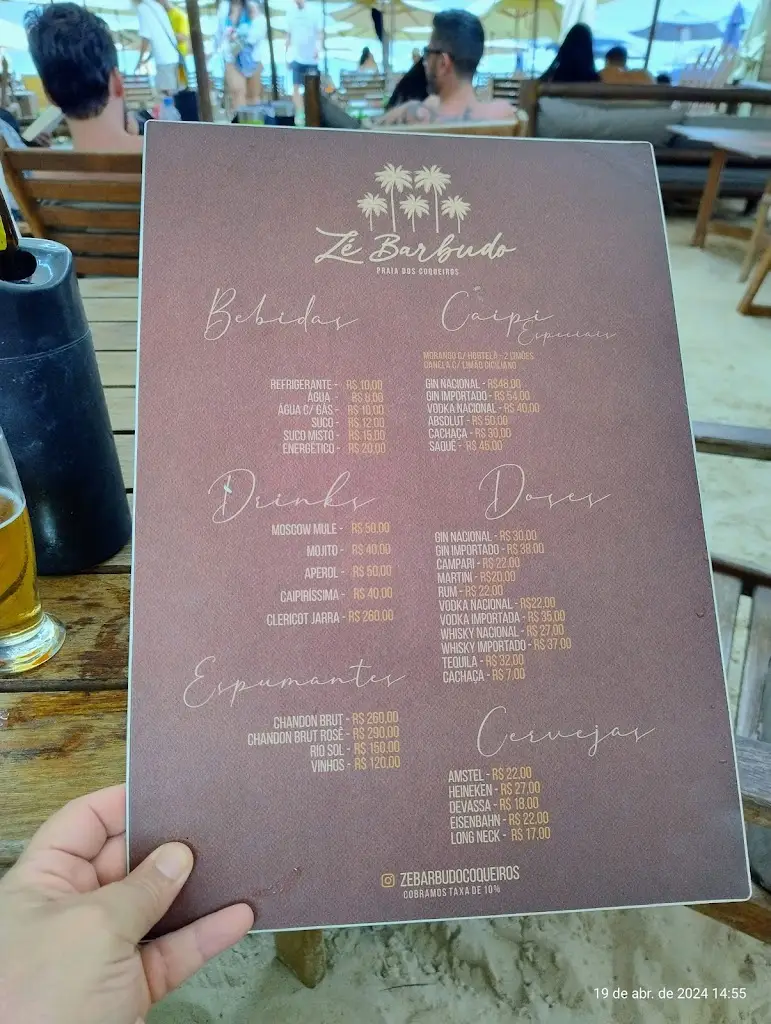 Zé Barbudo
PRAIA DOS COQUEIROS
Bebidas
REFRIGERANTE - R$ 10,00
ÁGUA - R$ 8,00
ÁGUA C/ GÁS - R$ 10,00
SUCO - R$ 12,00
SUCO MISTO - R$ 15,00
ENERGÉTICO - R$ 20,00
Caipi
Especiais
MORANGO C/ HORTELÃ - 2 LIMÕES
CANELA C/ LIMÃO SICILIANO
GIN NACIONAL - R$48,00
GIN IMPORTADO - R$ 54,00
VODKA NACIONAL - R$ 40,00
ABSOLUT - R$ 50,00
CACHAÇA - R$ 30,00
SAQUÊ - R$ 45,00
Drinks
MOSCOW MULE - R$ 50,00
MOJITO - R$ 40,00
APEROL - R$ 50,00
CAIPIRÍSSIMA - R$ 40,00
CLERICOT JARRA - R$ 260,00
Doses
GIN NACIONAL - R$ 30,00
GIN IMPORTADO - R$ 38,00
CAMPARI - R$ 22,00
MARTINI - R$20,00
RUM - R$ 22,00
VODKA NACIONAL - R$22,00
VODKA IMPORTADA - R$ 35,00
WHISKY NACIONAL - R$ 27,00
WHISKY IMPORTADO - R$ 37,00
TEQUILA - R$ 32,00
CACHAÇA - R$ 7,00
Espumantes
CHANDON BRUT - R$ 260,00
CHANDON BRUT ROSÊ - R$ 290,00
RIO SOL - R$ 150,00
VINHOS - R$ 120,00
Cervejas
AMSTEL - R$ 22,00
HEINEKEN - R$ 27,00
DEVASSA - R$ 18,00
EISENBAHN - R$ 22,00
LONG NECK - R$ 17,00
ZEBARBUDOCOQUEIROS
COBRAMOS TAXA DE 10%
19 de abr. de 2024 14:55